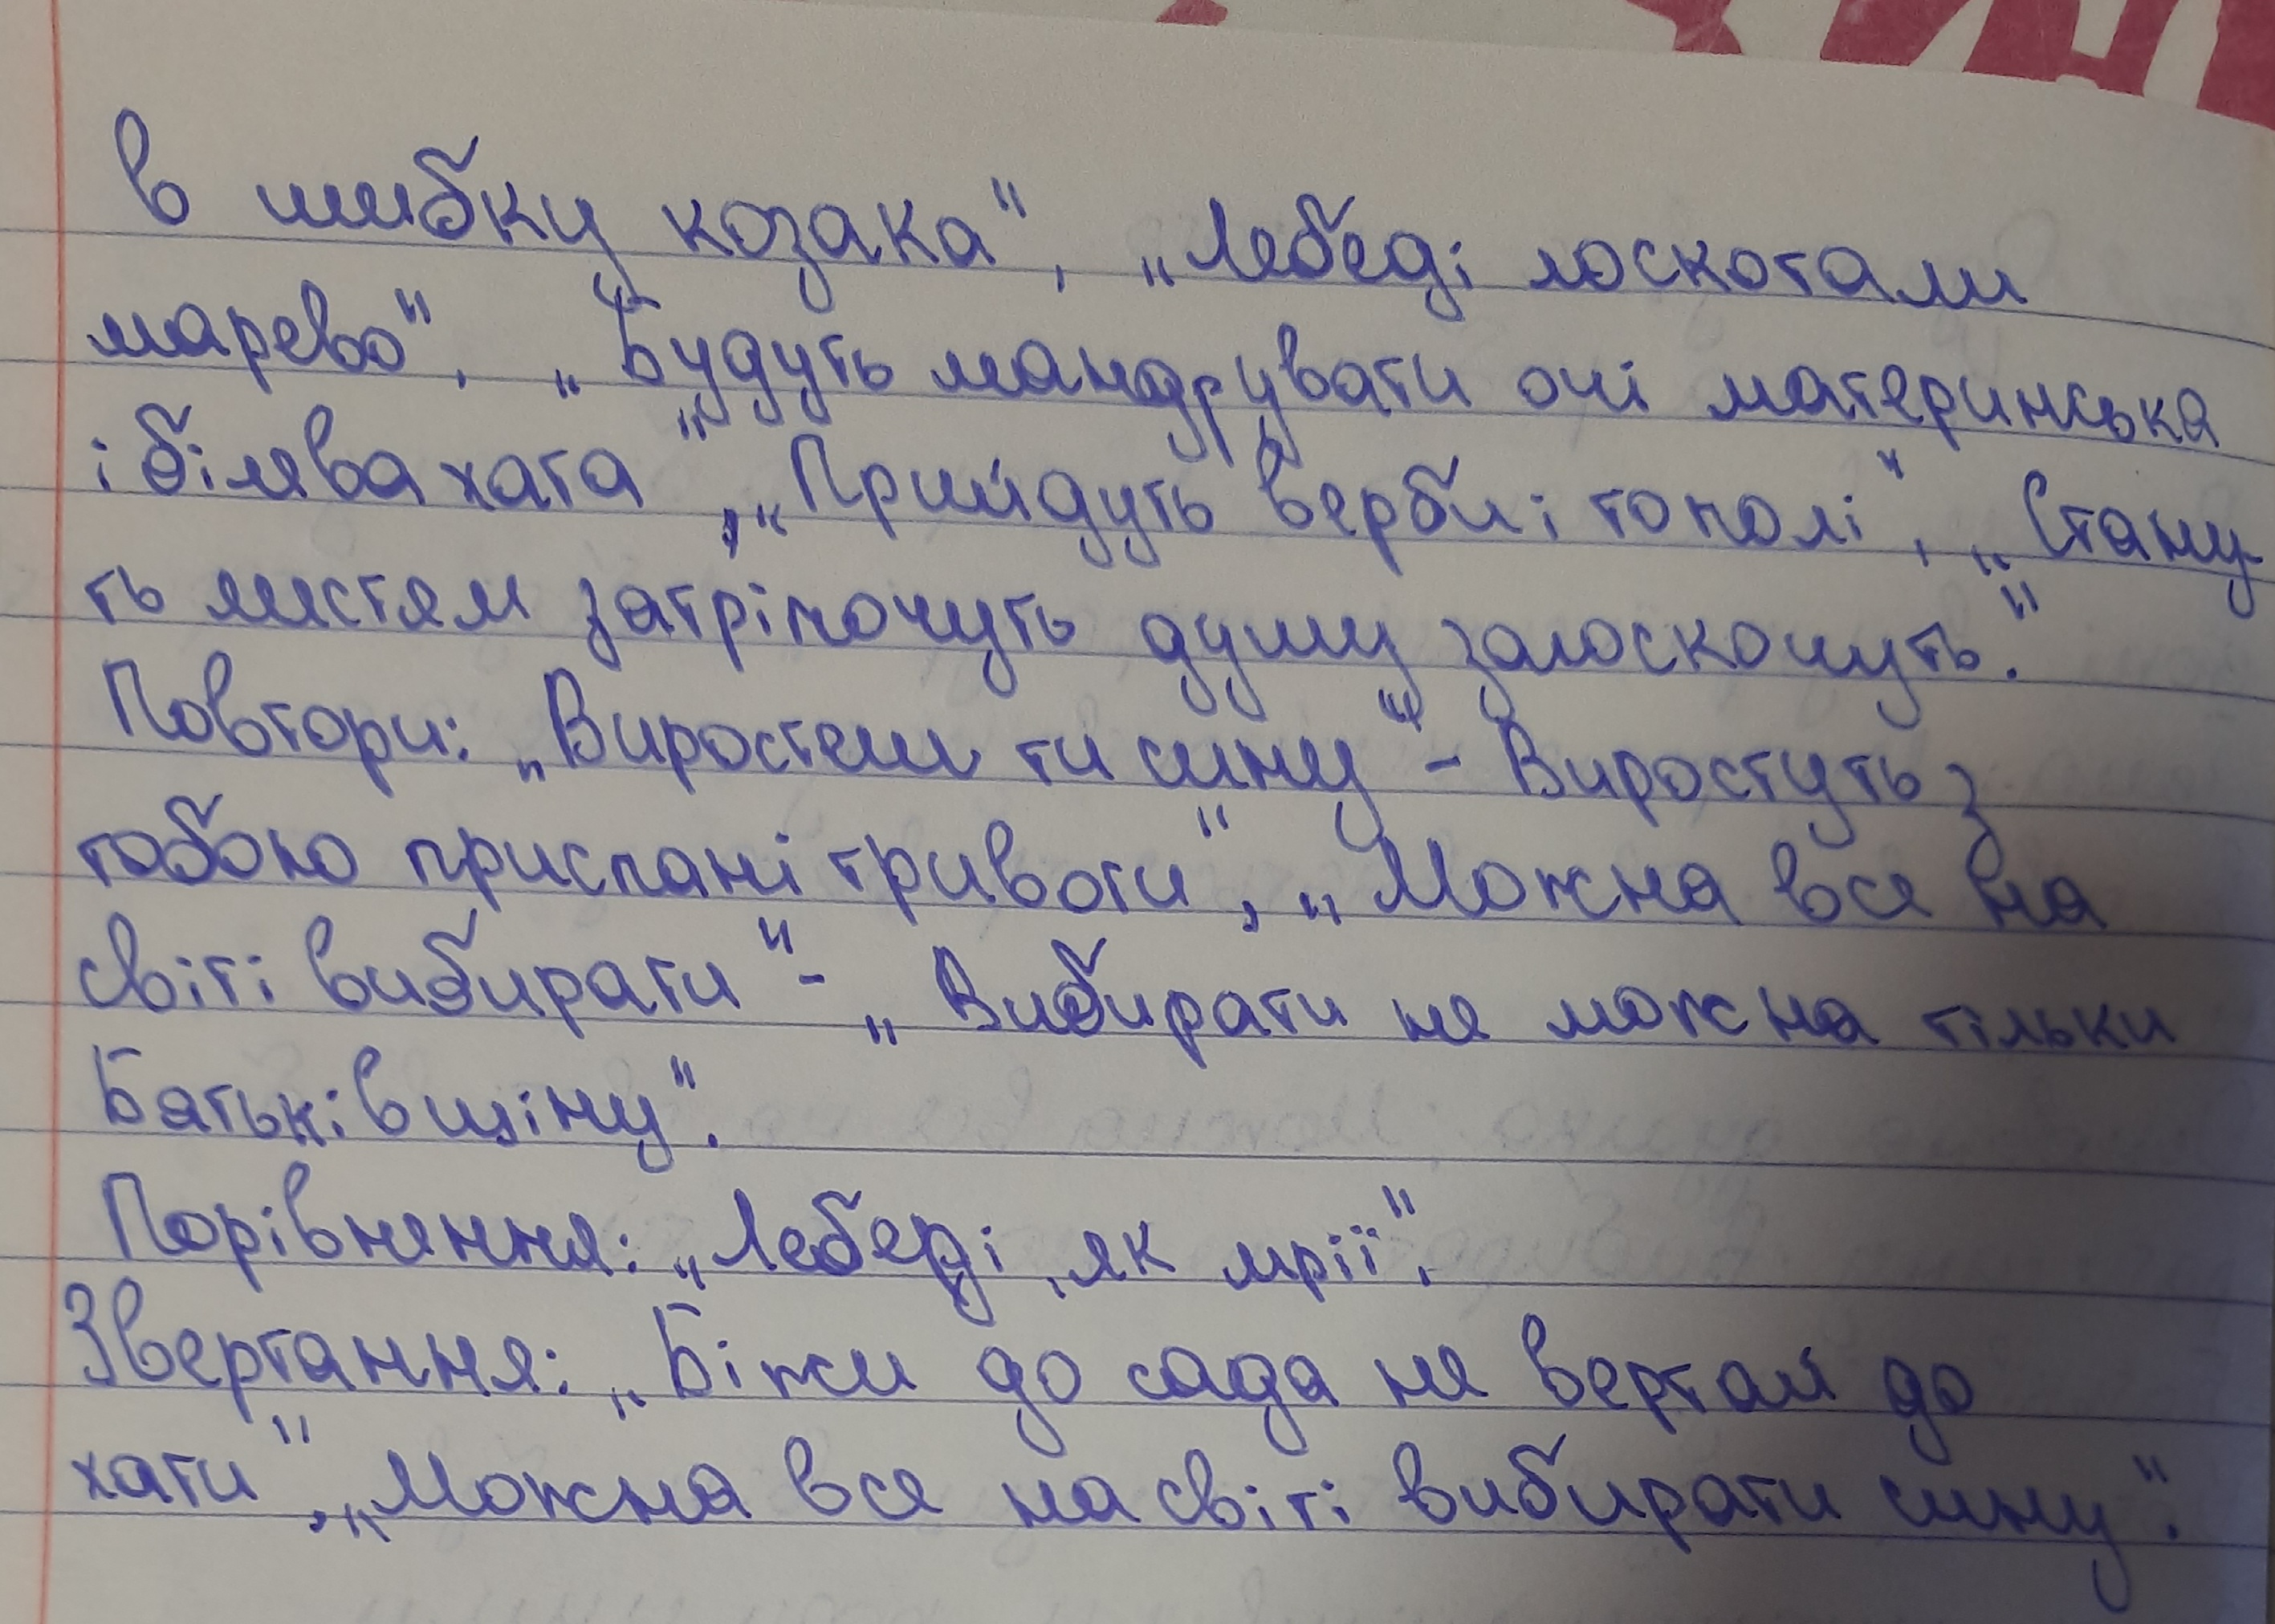 в шибку козака", „Лебеді лоскотали
марево", „Будуть мандрувати очі материнська
і білява хата", „Прийдуть верби і тополі", „Стану-
ть листям затріпочуть душу залоскочуть."
Повтори: „Виростеш ти сину" - „Виростуть з
тобою приспані тривоги", „Можна все на
світі вибирати" - „Вибирати не можна тільки
Батьківщіну".
Порівняння: „Лебеді, як мрії".
Звертання: „Біжи до сада не вертай до
хати", „Можна все на світі вибирати сину".